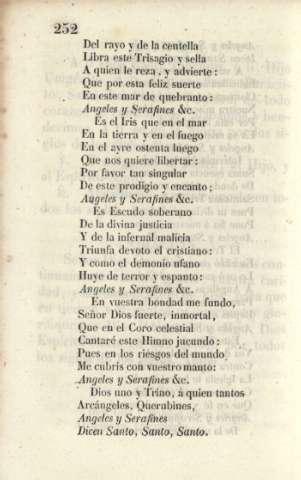 252
Del rayo y de la centella
Libra este Trisagio y sella
A quien le reza, y advierte:
Que por esta feliz suerte
En este mar de quebranto:
Angeles y Serafines &c.
Es el Iris que en el mar
En la tierra y en el fuego
En el ayre ostenta luego
Que nos quiere libertar:
Por favor tan singular
De este prodigio y encanto;
Angeles y Serafines &c.
Es Escudo soberano
De la divina justicia
Y de la infernal malicia
Triunfa devoto el cristiano:
Y como el demonio ufano
Huye de terror y espanto:
Angeles y Serafines &c.
En vuestra bondad me fundo,
Señor Dios fuerte, inmortal,
Que en el Coro celestial
Cantaré este Himno jucundo:
Pues en los riesgos del mundo
Me cubris con vuestro manto:
Angeles y Serafines &c.
Dios uno y Trino, á quien tantos
Arcángeles, Querabines,
Angeles y Serafines
Dicen Santo, Santo, Santo.